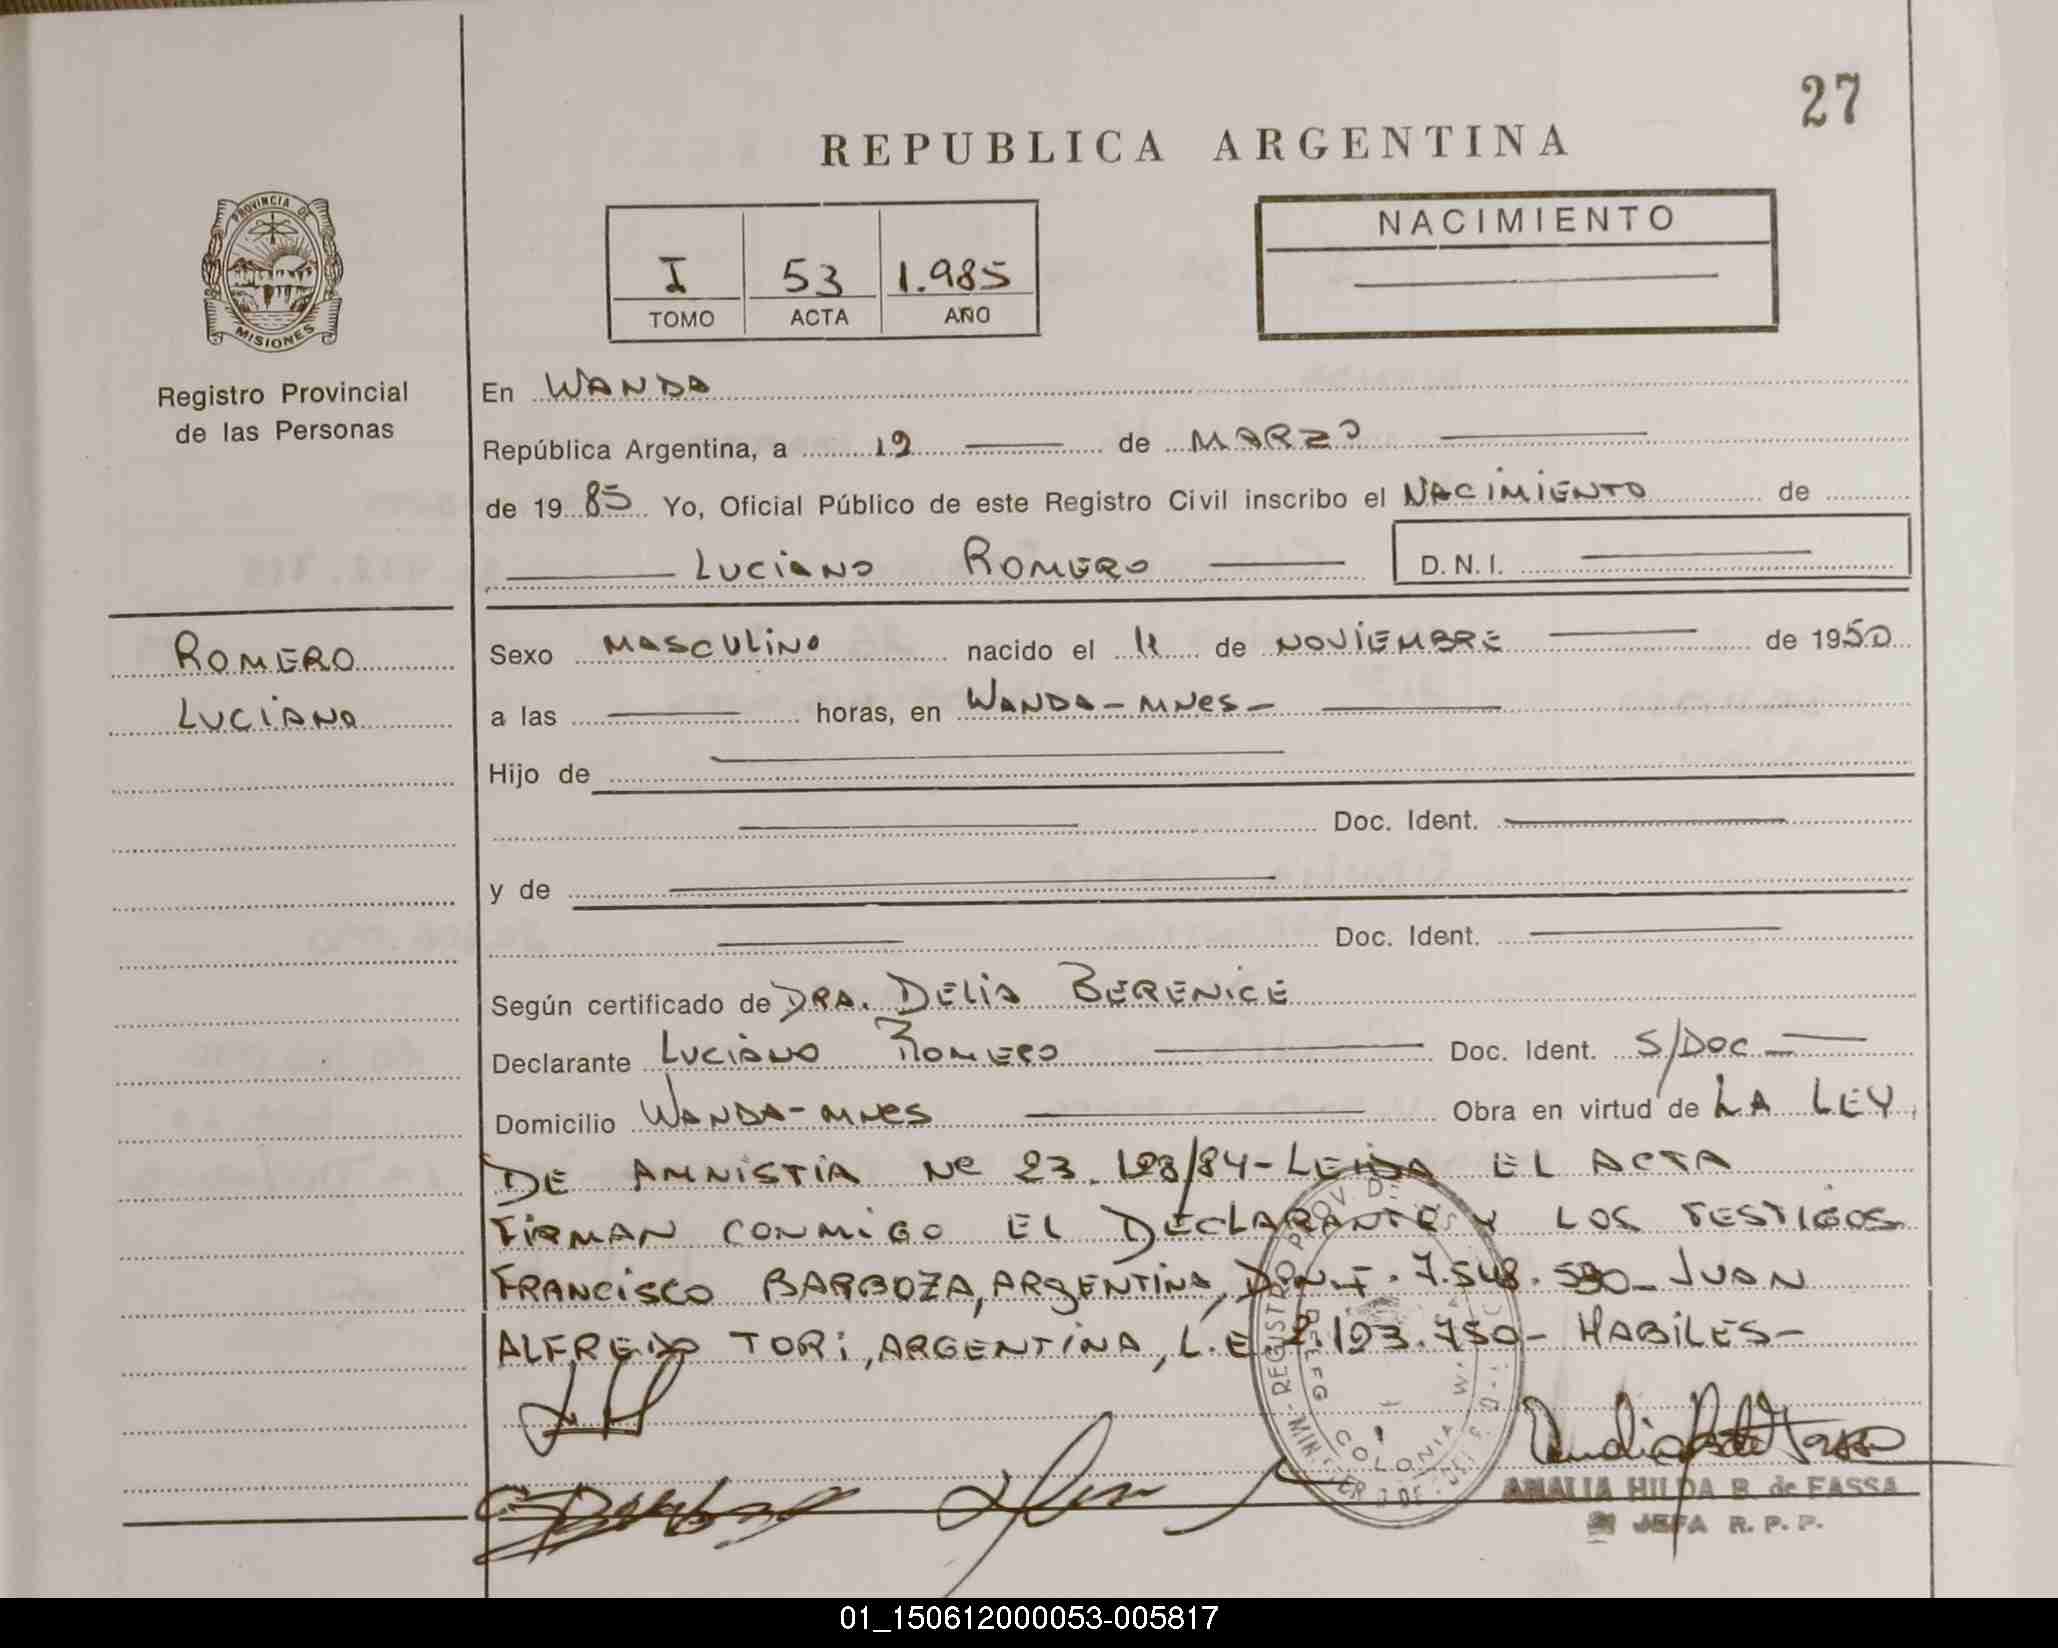 27
REPUBLICA ARGENTINA
PROVINCIA DE MISIONES
I 53 1.985
TOMO ACTA AÑO
NACIMIENTO
Registro Provincial
de las Personas
En WANDA
República Argentina, a 19 de MARZO
de 19 85 Yo, Oficial Público de este Registro Civil inscribo el NACIMIENTO de
LUCIANO ROMERO D.N.I.
ROMERO
LUCIANO
Sexo MASCULINO nacido el 11 de NOVIEMBRE de 1950
a las horas, en WANDA-MNES-
Hijo de
Doc. Ident.
y de
Doc. Ident.
Según certificado de DRA. DELIA BERENICE
Declarante LUCIANO ROMERO Doc. Ident. S/DOC
Domicilio WANDA-MNES Obra en virtud de LA LEY
DE AMNISTIA Nº 23.128/84-LEIDA EL ACTA
FIRMAN CONMIGO EL DECLARANTE Y LOS TESTIGOS
FRANCISCO BARBOZA, ARGENTINA, D.N.I. 7.548.530_ JUAN
ALFREDO TORI, ARGENTINA, L.E 2.193.750- HABILES-
COLONIA W
AMALIA HILDA B. de FASSA
JEFA R. P. P.
01_150612000053-005817